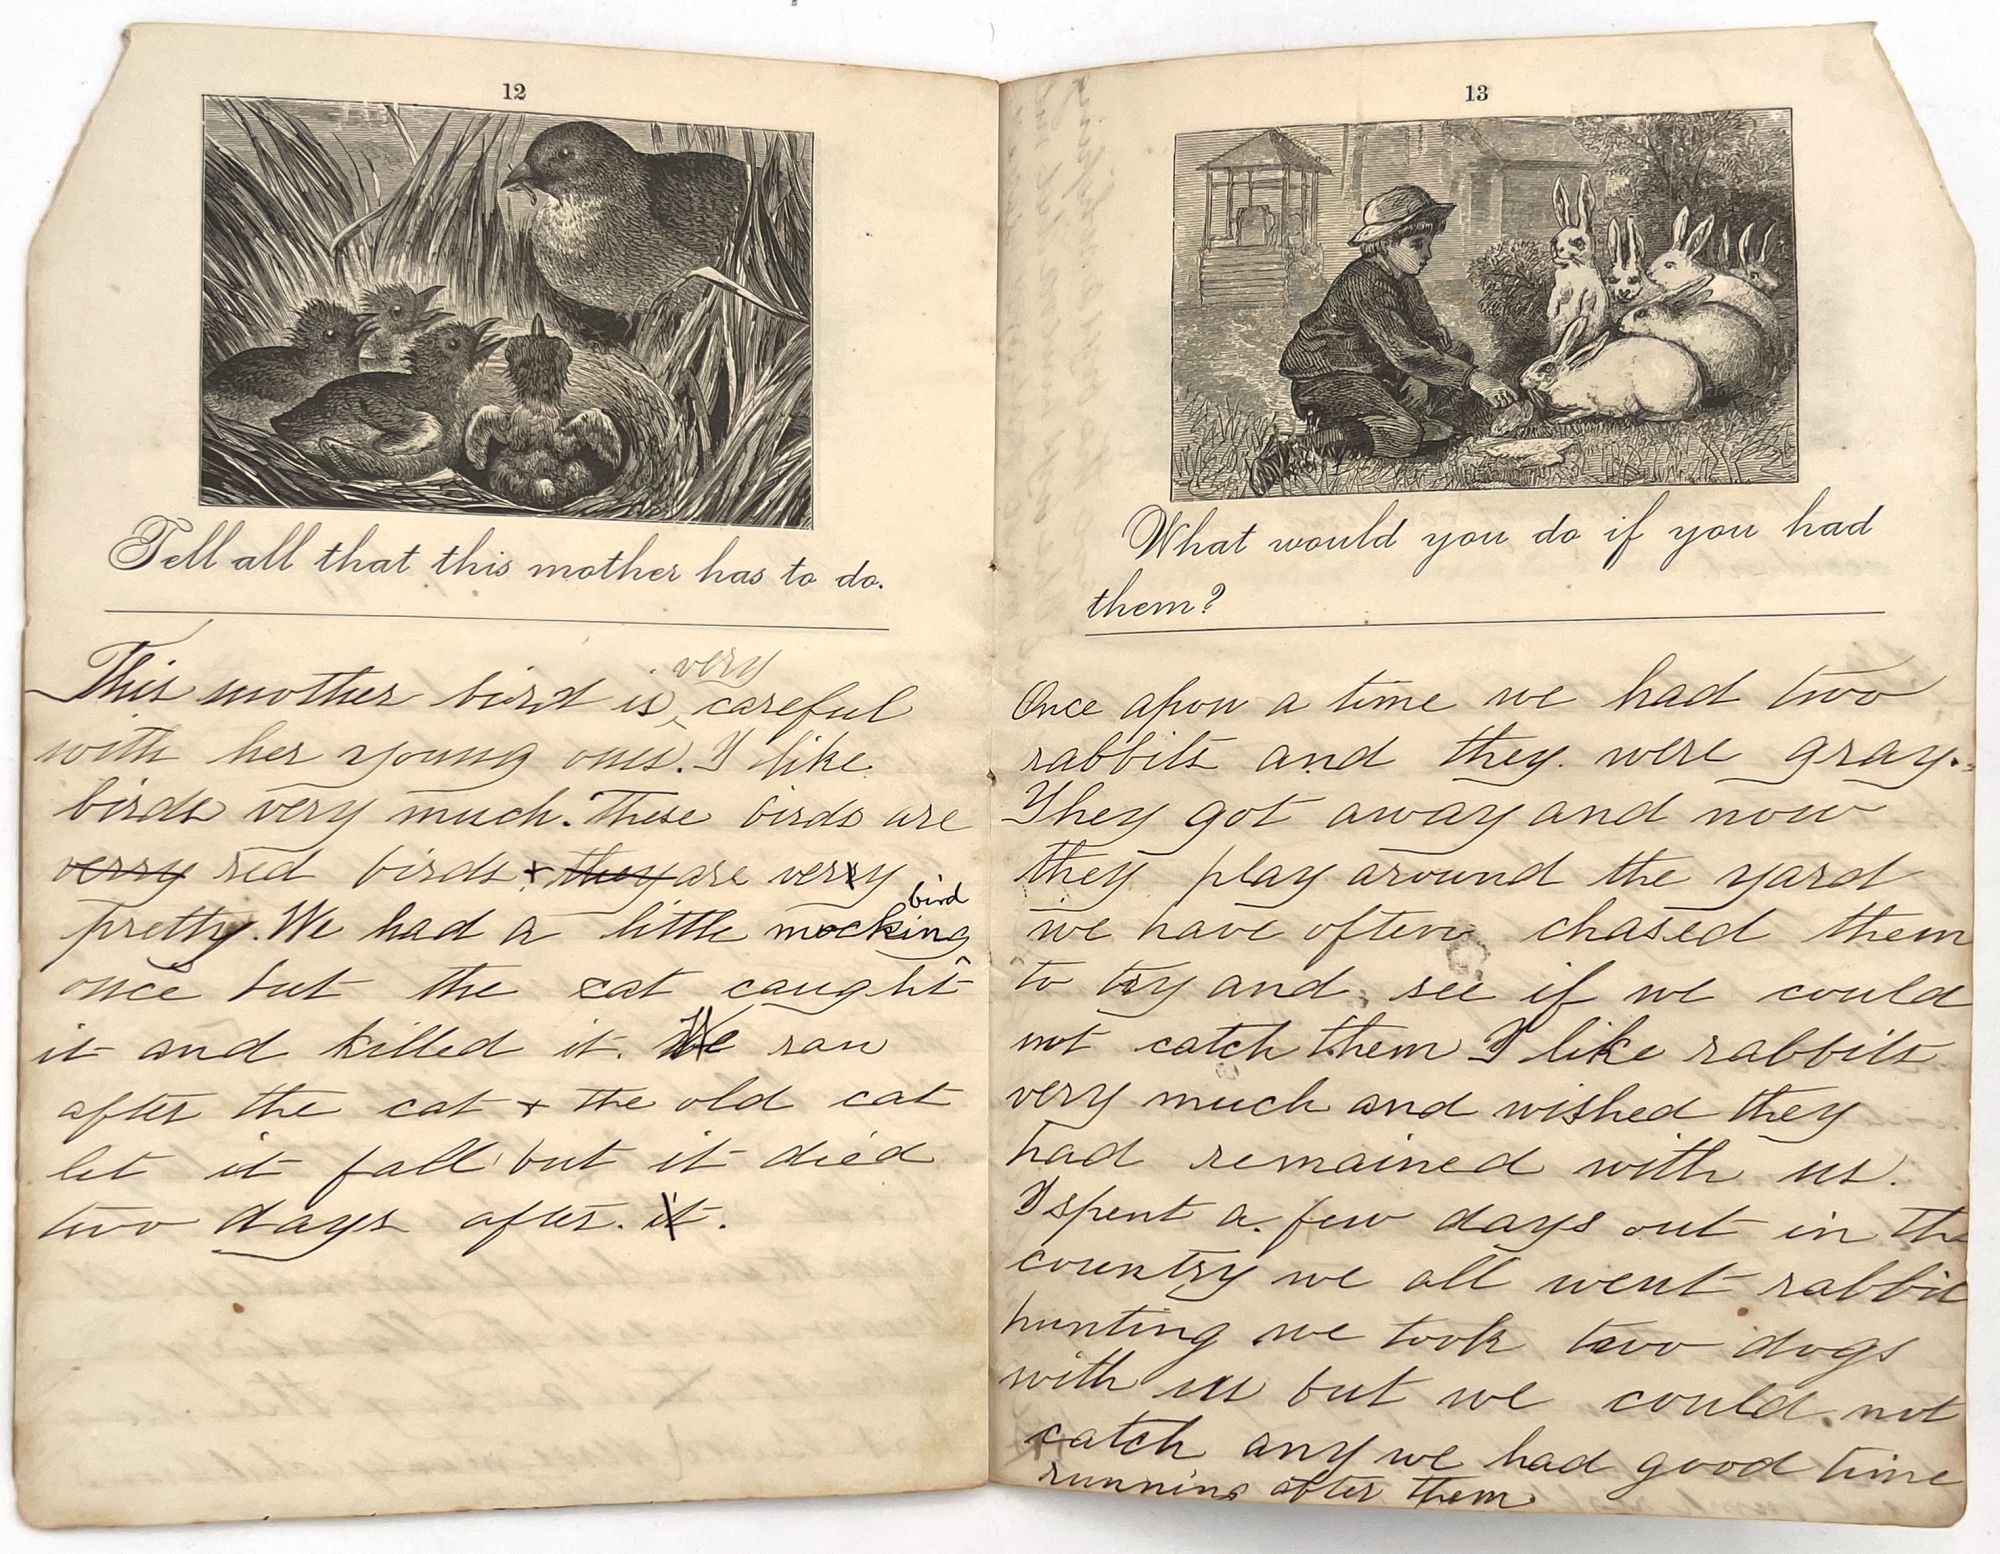 12
Tell all that this mother has to do.
This mother bird is very careful
with her young ones. I like
birds very much. These birds are
verry red birds & they are verry
pretty. We had a little mocking bird
once but the cat caught
it and killed it. We ran
after the cat & the old cat
let it fall but it died
two days after. it.
13
What would you do if you had
them?
Once apon a time we had two
rabbits and they were gray.
They got away and now
they play around the yard
we have often chased them
to try and see if we could
not catch them I like rabbits
very much and wished they
had remained with us.
I spent a few days out in the
country we all went rabbit
hunting we took two dogs
with us but we could not
catch any we had good time
running after them.